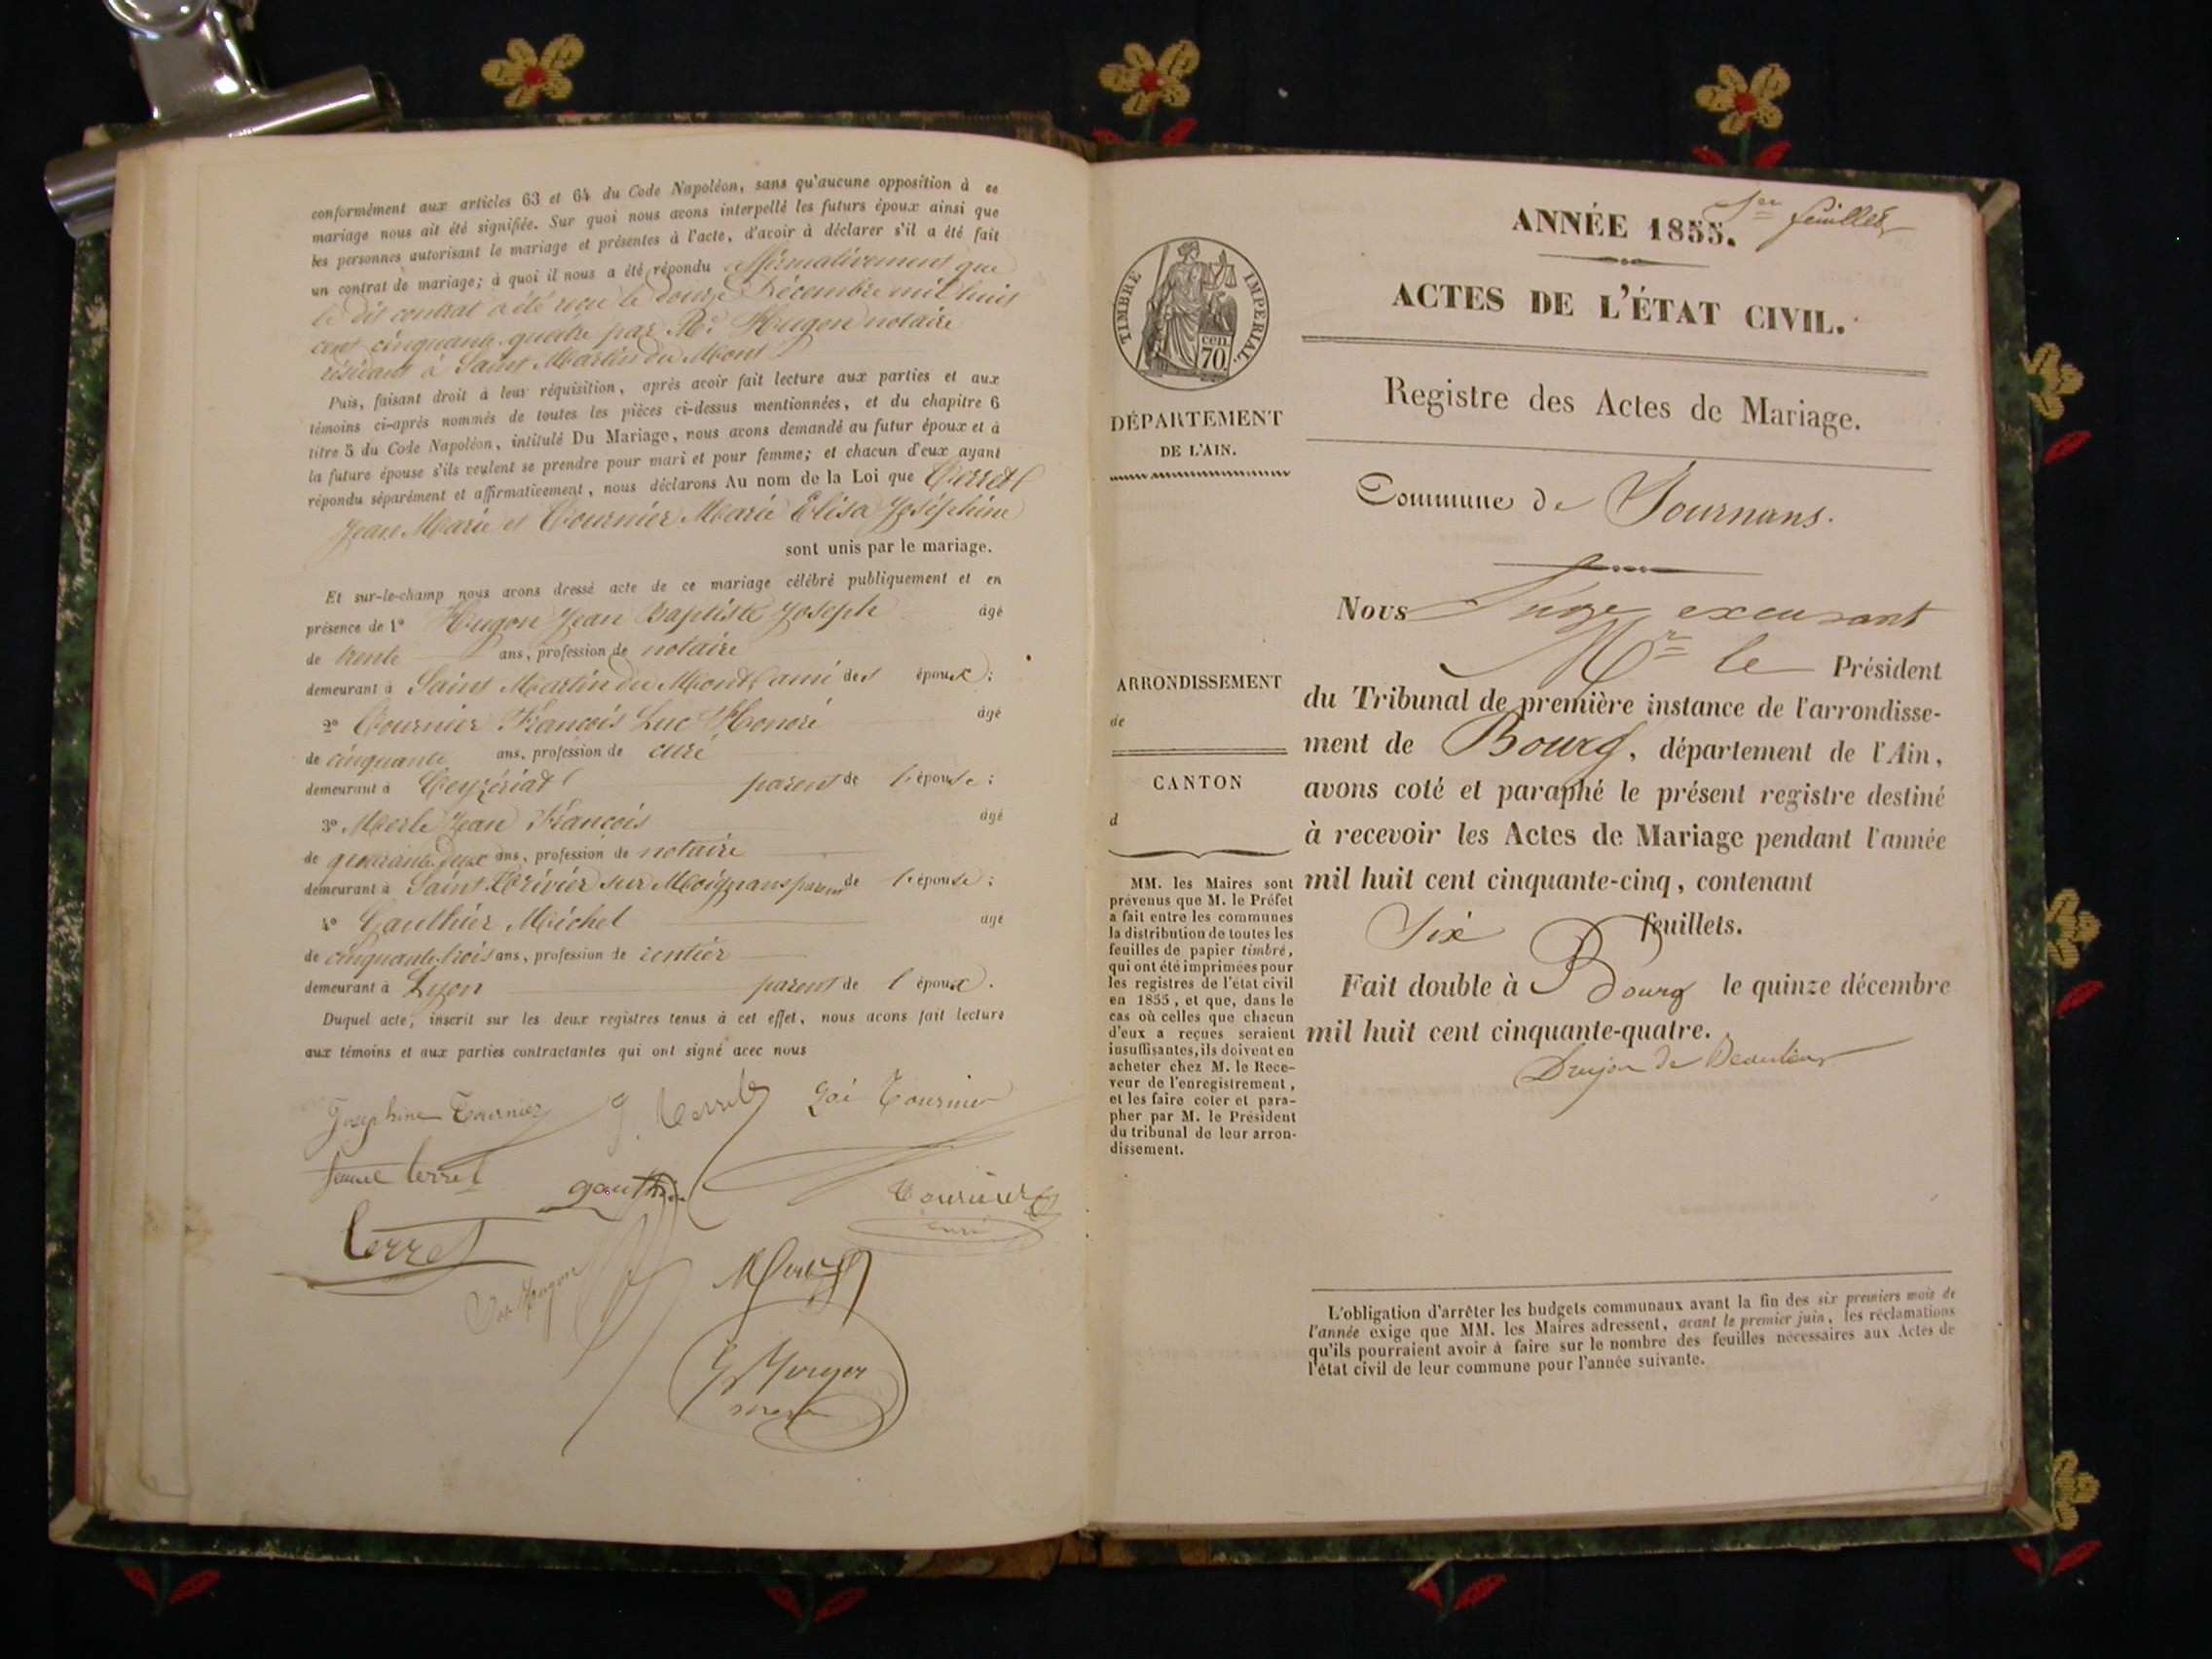 conformément aux articles 63 et 64 du Code Napoléon, sans qu'aucune opposition à ce
mariage nous ait été signifiée. Sur quoi nous avons interpellé les futurs époux ainsi que
les personnes autorisant le mariage et présentes à l'acte, d'avoir à déclarer s'il a été fait
un contrat de mariage; à quoi il nous a été répondu affirmativement que
le dit contrat a été reçu le douze Décembre mil huit
cent cinquante quatre par Me Hugon notaire
résidant à Saint Martin du Mont
Puis, faisant droit à leur réquisition, après avoir fait lecture aux parties et aux
témoins ci-après nommés de toutes les pièces ci-dessus mentionnées, et du chapitre 6
titre 5 du Code Napoléon, intitulé Du Mariage, nous avons demandé au futur époux et à
la future épouse s'ils veulent se prendre pour mari et pour femme; et chacun d'eux ayant
répondu séparément et affirmativement, nous déclarons Au nom de la Loi que Perret
Jean Marie et Tournier Marie Elisa Joséphine
sont unis par le mariage.
Et sur-le-champ nous avons dressé acte de ce mariage célébré publiquement et en
présence de 1° Hugon Jean Baptiste Joseph âgé
de trente ans, profession de notaire
demeurant à Saint Martin du Mont ami des époux;
2° Tournier François Luc Honoré âgé
de cinquante ans, profession de curé
demeurant à Ceyzériat parent de l'épouse;
3° Merle Jean François âgé
de quarante deux ans, profession de notaire
demeurant à Saint Trivier sur Moignans parent de l'épouse;
4° Gauthier Michel âgé
de cinquante trois ans, profession de rentier
demeurant à Lyon parent de l'époux.
Duquel acte, inscrit sur les deux registres tenus à cet effet, nous avons fait lecture
aux témoins et aux parties contractantes qui ont signé avec nous
Joséphine Tournier J. Perret Tournier
Perret Gauthier Tournier
curé
Perret
Hugon Merle
Monger
maire
1er feuillet
ANNÉE 1855.
ACTES DE L'ÉTAT CIVIL.
Registre des Actes de Mariage.
TIMBRE IMPÉRIAL.
cen. 70.
DÉPARTEMENT
DE L'AIN.
Commune de Journans.
ARRONDISSEMENT
de
CANTON
d
MM. les Maires sont
prévenus que M. le Préfet
a fait entre les communes
la distribution de toutes les
feuilles de papier timbré,
qui ont été imprimées pour
les registres de l'état civil
en 1855, et que, dans le
cas où celles que chacun
d'eux a reçues seraient
insuffisantes, ils doivent en
acheter chez M. le Rece-
veur de l'enregistrement,
et les faire coter et para-
pher par M. le Président
du tribunal de leur arron-
dissement.
Nous Juge excusant
Mr le Président
du Tribunal de première instance de l'arrondisse-
ment de Bourg, département de l'Ain,
avons coté et paraphé le présent registre destiné
à recevoir les Actes de Mariage pendant l'année
mil huit cent cinquante-cinq, contenant
Six feuillets.
Fait double à Bourg le quinze décembre
mil huit cent cinquante-quatre.
Drujon de Beaulieu
L'obligation d'arrêter les budgets communaux avant la fin des six premiers mois de
l'année exige que MM. les Maires adressent, avant le premier juin, les réclamations
qu'ils pourraient avoir à faire sur le nombre des feuilles nécessaires aux Actes de
l'état civil de leur commune pour l'année suivante.